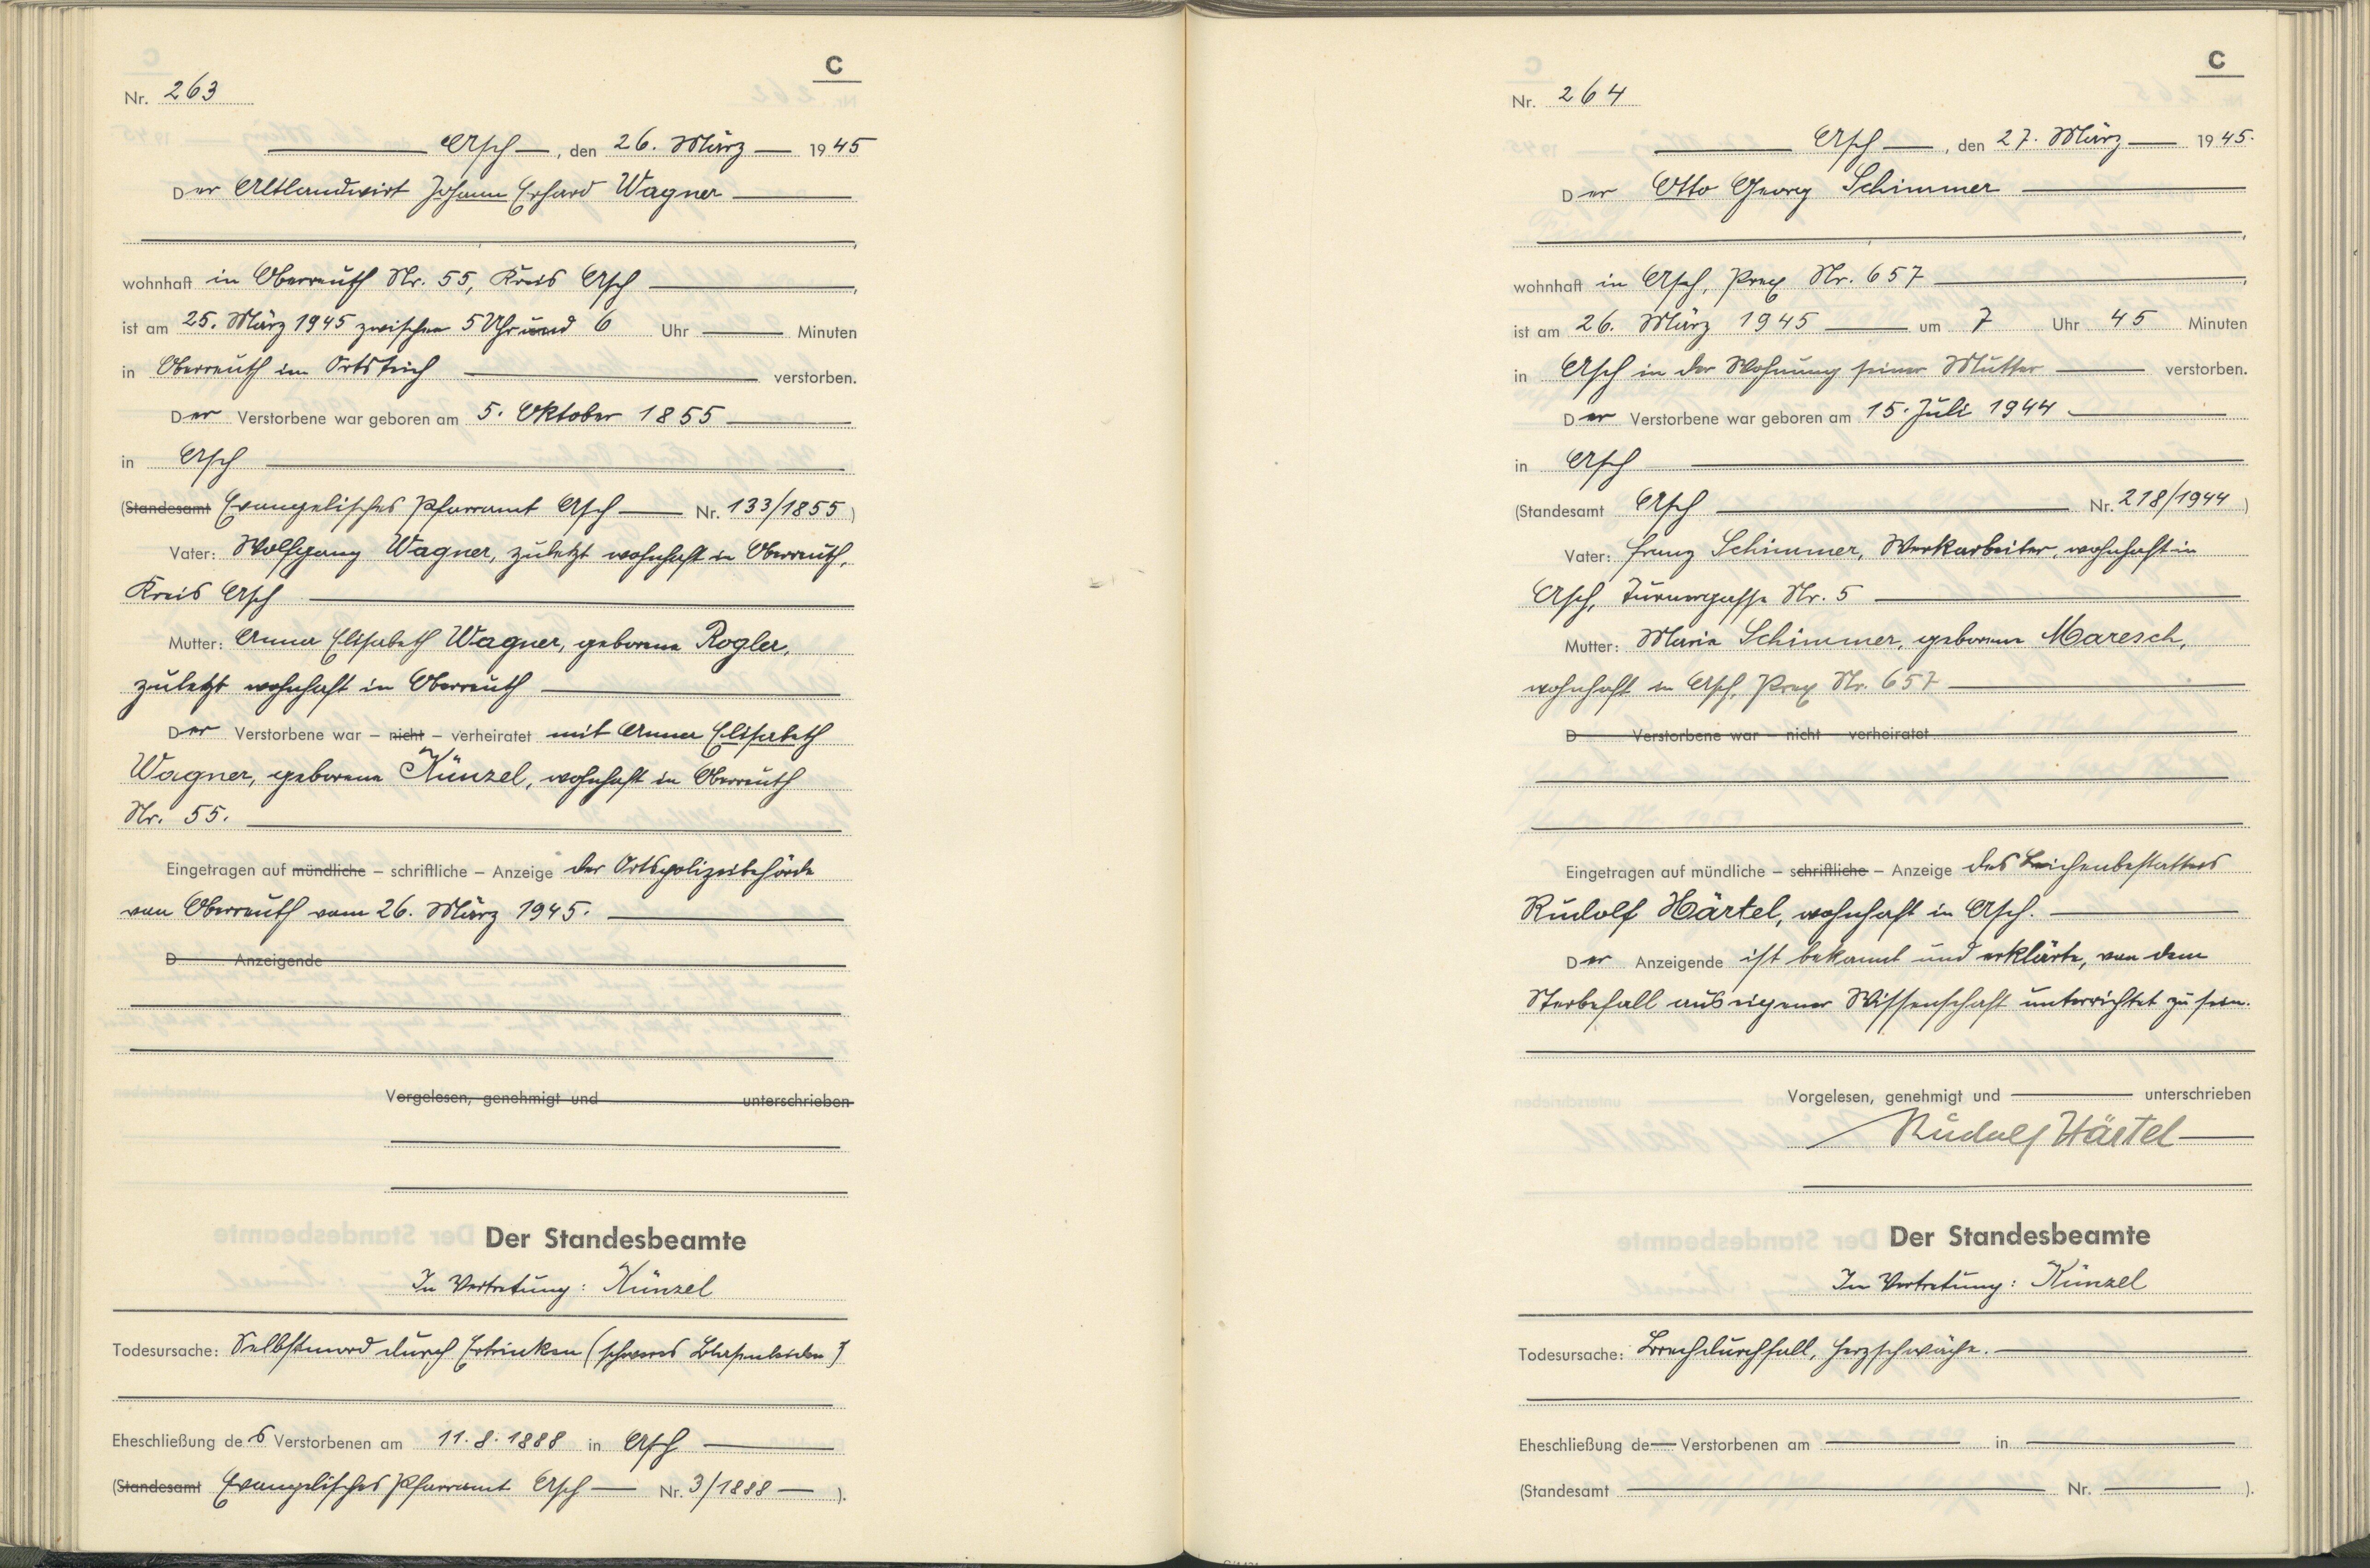 C
Nr. 263
Asch, den 26. März 1945
Der Altlandwirt Johann Erhard Wagner
wohnhaft in Oberreuth Nr. 55, Kreis Asch,
ist am 25. März 1945 zwischen 5 Uhr und 6 Uhr Minuten
in Oberreuth im Ortsteich verstorben.
Der Verstorbene war geboren am 5. Oktober 1855
in Asch
(Standesamt Evangelisches Pfarramt Asch Nr. 133/1855)
Vater: Wolfgang Wagner, zuletzt wohnhaft in Oberreuth,
Kreis Asch
Mutter: Anna Elisabeth Wagner, geborene Rogler,
zuletzt wohnhaft in Oberreuth
Der Verstorbene war – nicht – verheiratet mit Anna Elisabeth
Wagner, geborene Künzel, wohnhaft in Oberreuth
Nr. 55.
Eingetragen auf mündliche – schriftliche – Anzeige der Ortspolizeibehörde
von Oberreuth vom 26. März 1945.
D Anzeigende
Vorgelesen, genehmigt und unterschrieben
Der Standesbeamte
In Vertretung: Künzel
Todesursache: Selbstmord durch Ertrinken (schweres Blasenleiden)
Eheschließung des Verstorbenen am 11.8.1888 in Asch
(Standesamt Evangelisches Pfarramt Asch Nr. 3/1888 ).
C
Nr. 264
Asch, den 27. März 1945.
Der Otto Georg Schimmer
wohnhaft in Asch, Prex Nr. 657,
ist am 26. März 1945 um 7 Uhr 45 Minuten
in Asch in der Wohnung seiner Mutter verstorben.
Der Verstorbene war geboren am 15. Juli 1944
in Asch
(Standesamt Asch Nr. 218/1944)
Vater: Franz Schimmer, Werkarbeiter, wohnhaft in
Asch, Turnergasse Nr. 5
Mutter: Maria Schimmer, geborene Maresch,
wohnhaft in Asch, Prex Nr. 657
D Verstorbene war – nicht – verheiratet
Eingetragen auf mündliche – schriftliche – Anzeige des Leichenbestatters
Rudolf Härtel, wohnhaft in Asch.
Der Anzeigende ist bekannt und erklärte, von dem
Sterbefall aus eigener Wissenschaft unterrichtet zu sein.
Vorgelesen, genehmigt und unterschrieben
Rudolf Härtel
Der Standesbeamte
In Vertretung: Künzel
Todesursache: Brechdurchfall, Herzschwäche.
Eheschließung de Verstorbenen am in
(Standesamt Nr. ).